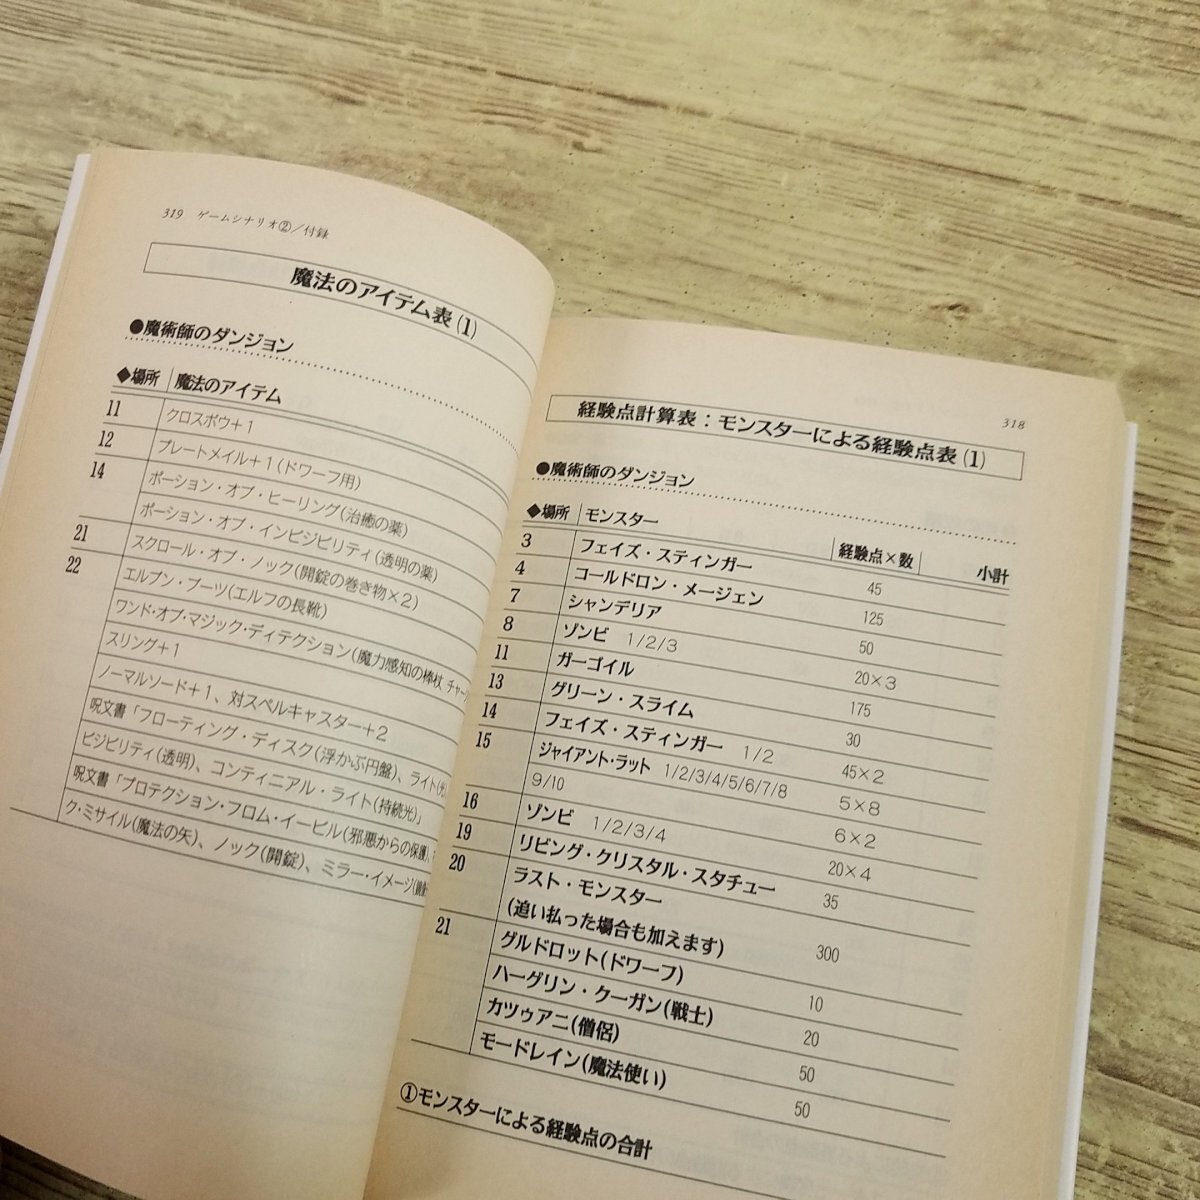 319 ゲームシナリオ②/付録
魔法のアイテム表(1)
●魔術師のダンジョン
◆場所 魔法のアイテム
11 クロスボウ+1
12 プレートメイル+1(ドワーフ用)
14 ポーション・オブ・ヒーリング(治癒の薬)
ポーション・オブ・インビジビリティ(透明の薬)
21 スクロール・オブ・ノック(開錠の巻き物×2)
22 エルブン・ブーツ(エルフの長靴)
ワンド・オブ・マジック・ディテクション(魔力感知の棒杖 チャー
スリング+1
ノーマルソード+1、対スペルキャスター+2
呪文書「フローティング・ディスク(浮かぶ円盤)、ライト(光
ビジビリティ(透明)、コンティニアル・ライト(持続光)」
呪文書「プロテクション・フロム・イービル(邪悪からの保護)、
ク・ミサイル(魔法の矢)、ノック(開錠)、ミラー・イメージ(
318
経験点計算表:モンスターによる経験点表(1)
●魔術師のダンジョン
◆場所 モンスター 経験点×数 小計
3 フェイズ・スティンガー 45
4 コールドロン・メージェン 125
7 シャンデリア 50
8 ゾンビ 1/2/3 20×3
11 ガーゴイル 175
13 グリーン・スライム 30
14 フェイズ・スティンガー 1/2 45×2
15 ジャイアント・ラット 1/2/3/4/5/6/7/8 5×8
9/10 6×2
16 ゾンビ 1/2/3/4 20×4
19 リビング・クリスタル・スタチュー 35
20 ラスト・モンスター
(追い払った場合も加えます) 300
21 グルドロット(ドワーフ) 10
ハーグリン・クーガン(戦士) 20
カツゥアニ(僧侶) 50
モードレイン(魔法使い) 50
①モンスターによる経験点の合計